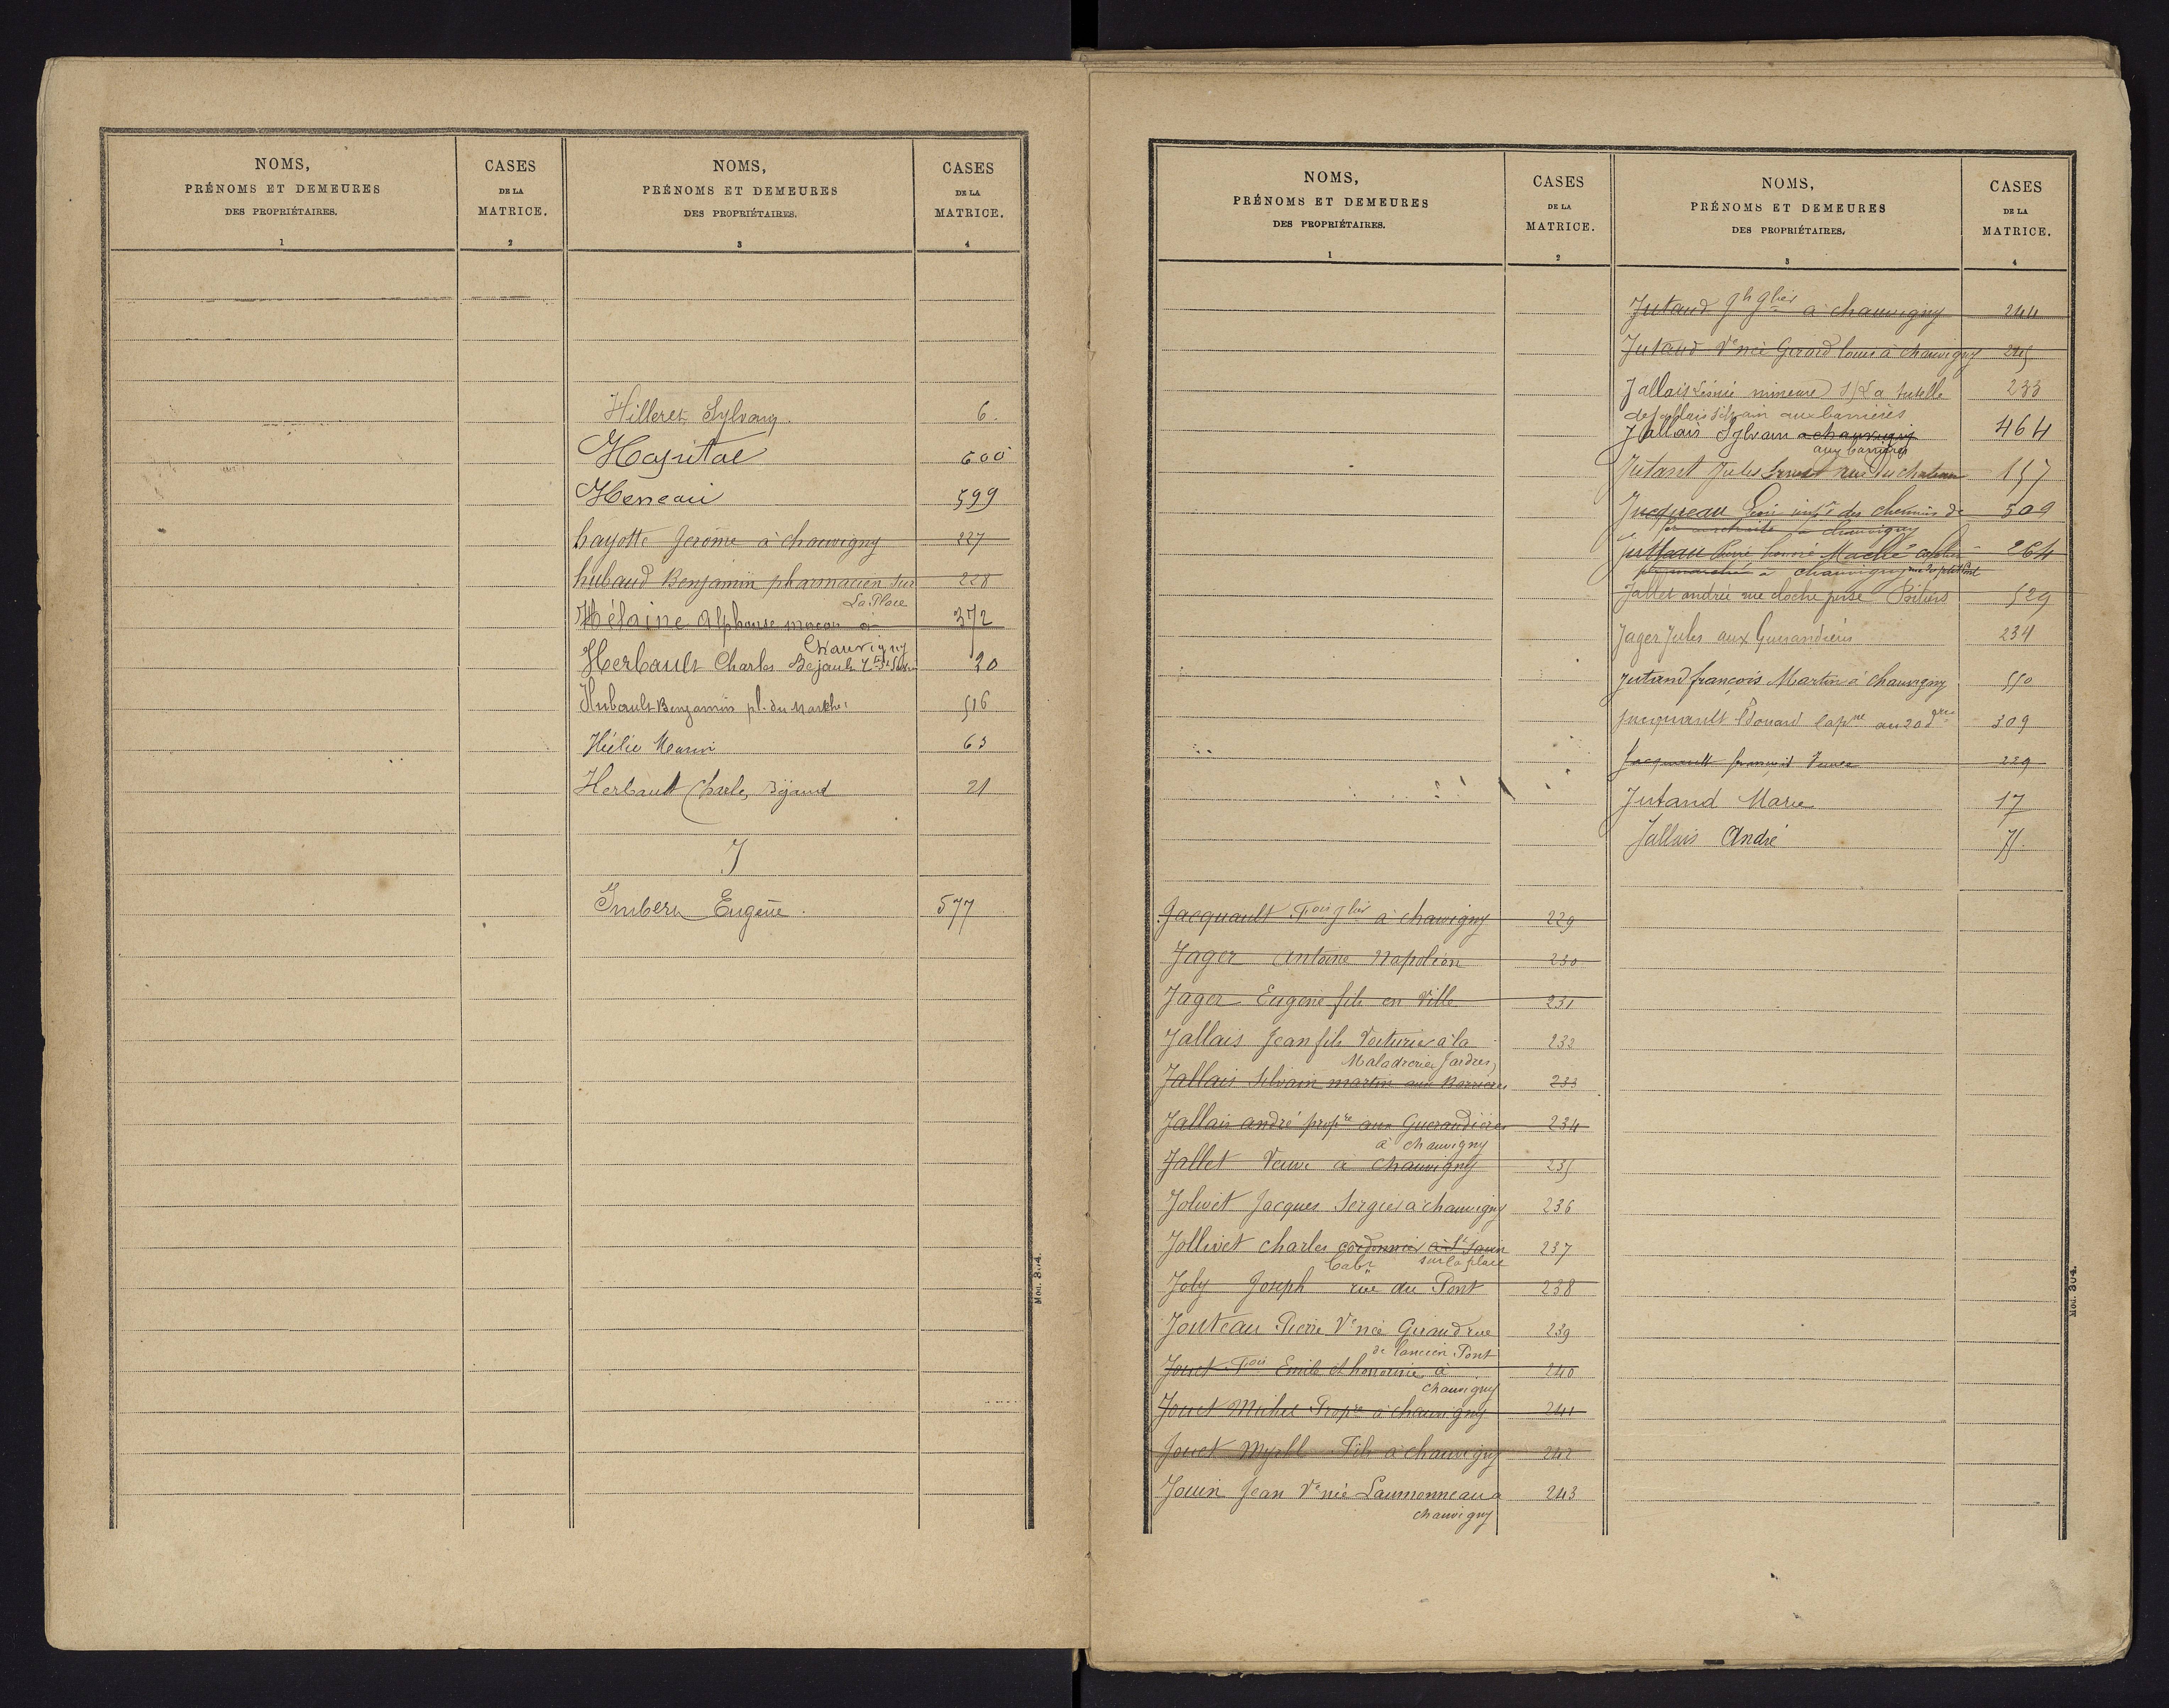 NOMS,
PRÉNOMS ET DEMEURES
DES PROPRIÉTAIRES.
1
CASES
DE LA
MATRICE.
2
NOMS,
PRÉNOMS ET DEMEURES
DES PROPRIÉTAIRES.
3
CASES
DE LA
MATRICE.
4
Hilleret Sylvain 6.
Hopital 600
Heneau 599
hayotte Jerome à chauvigny 227
hubaud Benjamin pharmacien sur 228
La Place
Hélaine Alphonse macon à 372
Chauvigny
Herbault Charles 20
Hubault Benjamin pl. du Marché 516
Hélie 63
Herbault Charles Bijaud 21
I
Imbert Eugène. 577
Mod. 304.
NOMS,
PRÉNOMS ET DEMEURES
DES PROPRIÉTAIRES.
1
CASES
DE LA
MATRICE.
2
Jacquault Fois à chauvigny 229
Jager Antoine Napoléon 230
Jager Eugène fils en Ville 231
Jallais Jean fils Voiturier à la 232
Maladrerie Jardres
Jallais Silvain martin aux Barrières 233
Jallais andré propre aux Guerandières 234
à chauvigny
Jallet Veuve à Chauvigny 235
Jolivet Jacques Sergier à chauvigny 236
Jollivet charles cordonnier à St Savin 237
Cabr sur la place
Joly Joseph rue du Pont 238
Jouteau Pierre Ve née Giraud rue 239
de l'ancien Pont
Jouet Fois Emile et honorine à 240
chauvigny
Jouet Michel Propre à chauvigny 241
Jouet Myrtil Fils à chauvigny 242
Jouin Jean Ve née Laumonneau à 243
chauvigny
NOMS,
PRÉNOMS ET DEMEURES
DES PROPRIÉTAIRES.
3
CASES
DE LA
MATRICE.
4
Jutaud à chauvigny 244
Jutaud Ve née Gerard louis à chauvigny 245
Jallais mineure s/ La tutelle 233
de Jallais Silvain aux barrières
Jallais Sylvain à chauvigny 464
aux barrières
Jutant Jules Ernest rue du chateau 157
Jucqueau des chemins de 509
fer à Chauvigny
Jutteau Pierre 264
à chauvigny
Jallet andré rue cloche perse Poitiers 529
Jager Jules aux Guerandières 234
Jutand françois Martin à chauvigny 550
Jacquault Edouard Capne au 20 309
Jacquault françois Veuve 229
Jutand Marie 17
Jallais André 75.
Mod. 304.